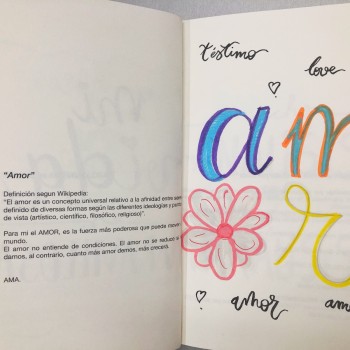 "Amor"
Definición segun Wikipedia:
"El amor es un concepto universal relativo a la afinidad entre
definido de diversas formas según las diferentes ideologías y
de vista (artístico, científico, filosófico, religioso)".
Para mi el AMOR, es la fuerza más poderosa que puede
mundo.
El amor no entiende de condiciones, El amor no se reduce
damos, al contrario, cuanto más amor demos, más crecerá.
AMA.
t'éstimo
love
am
r
amor
am